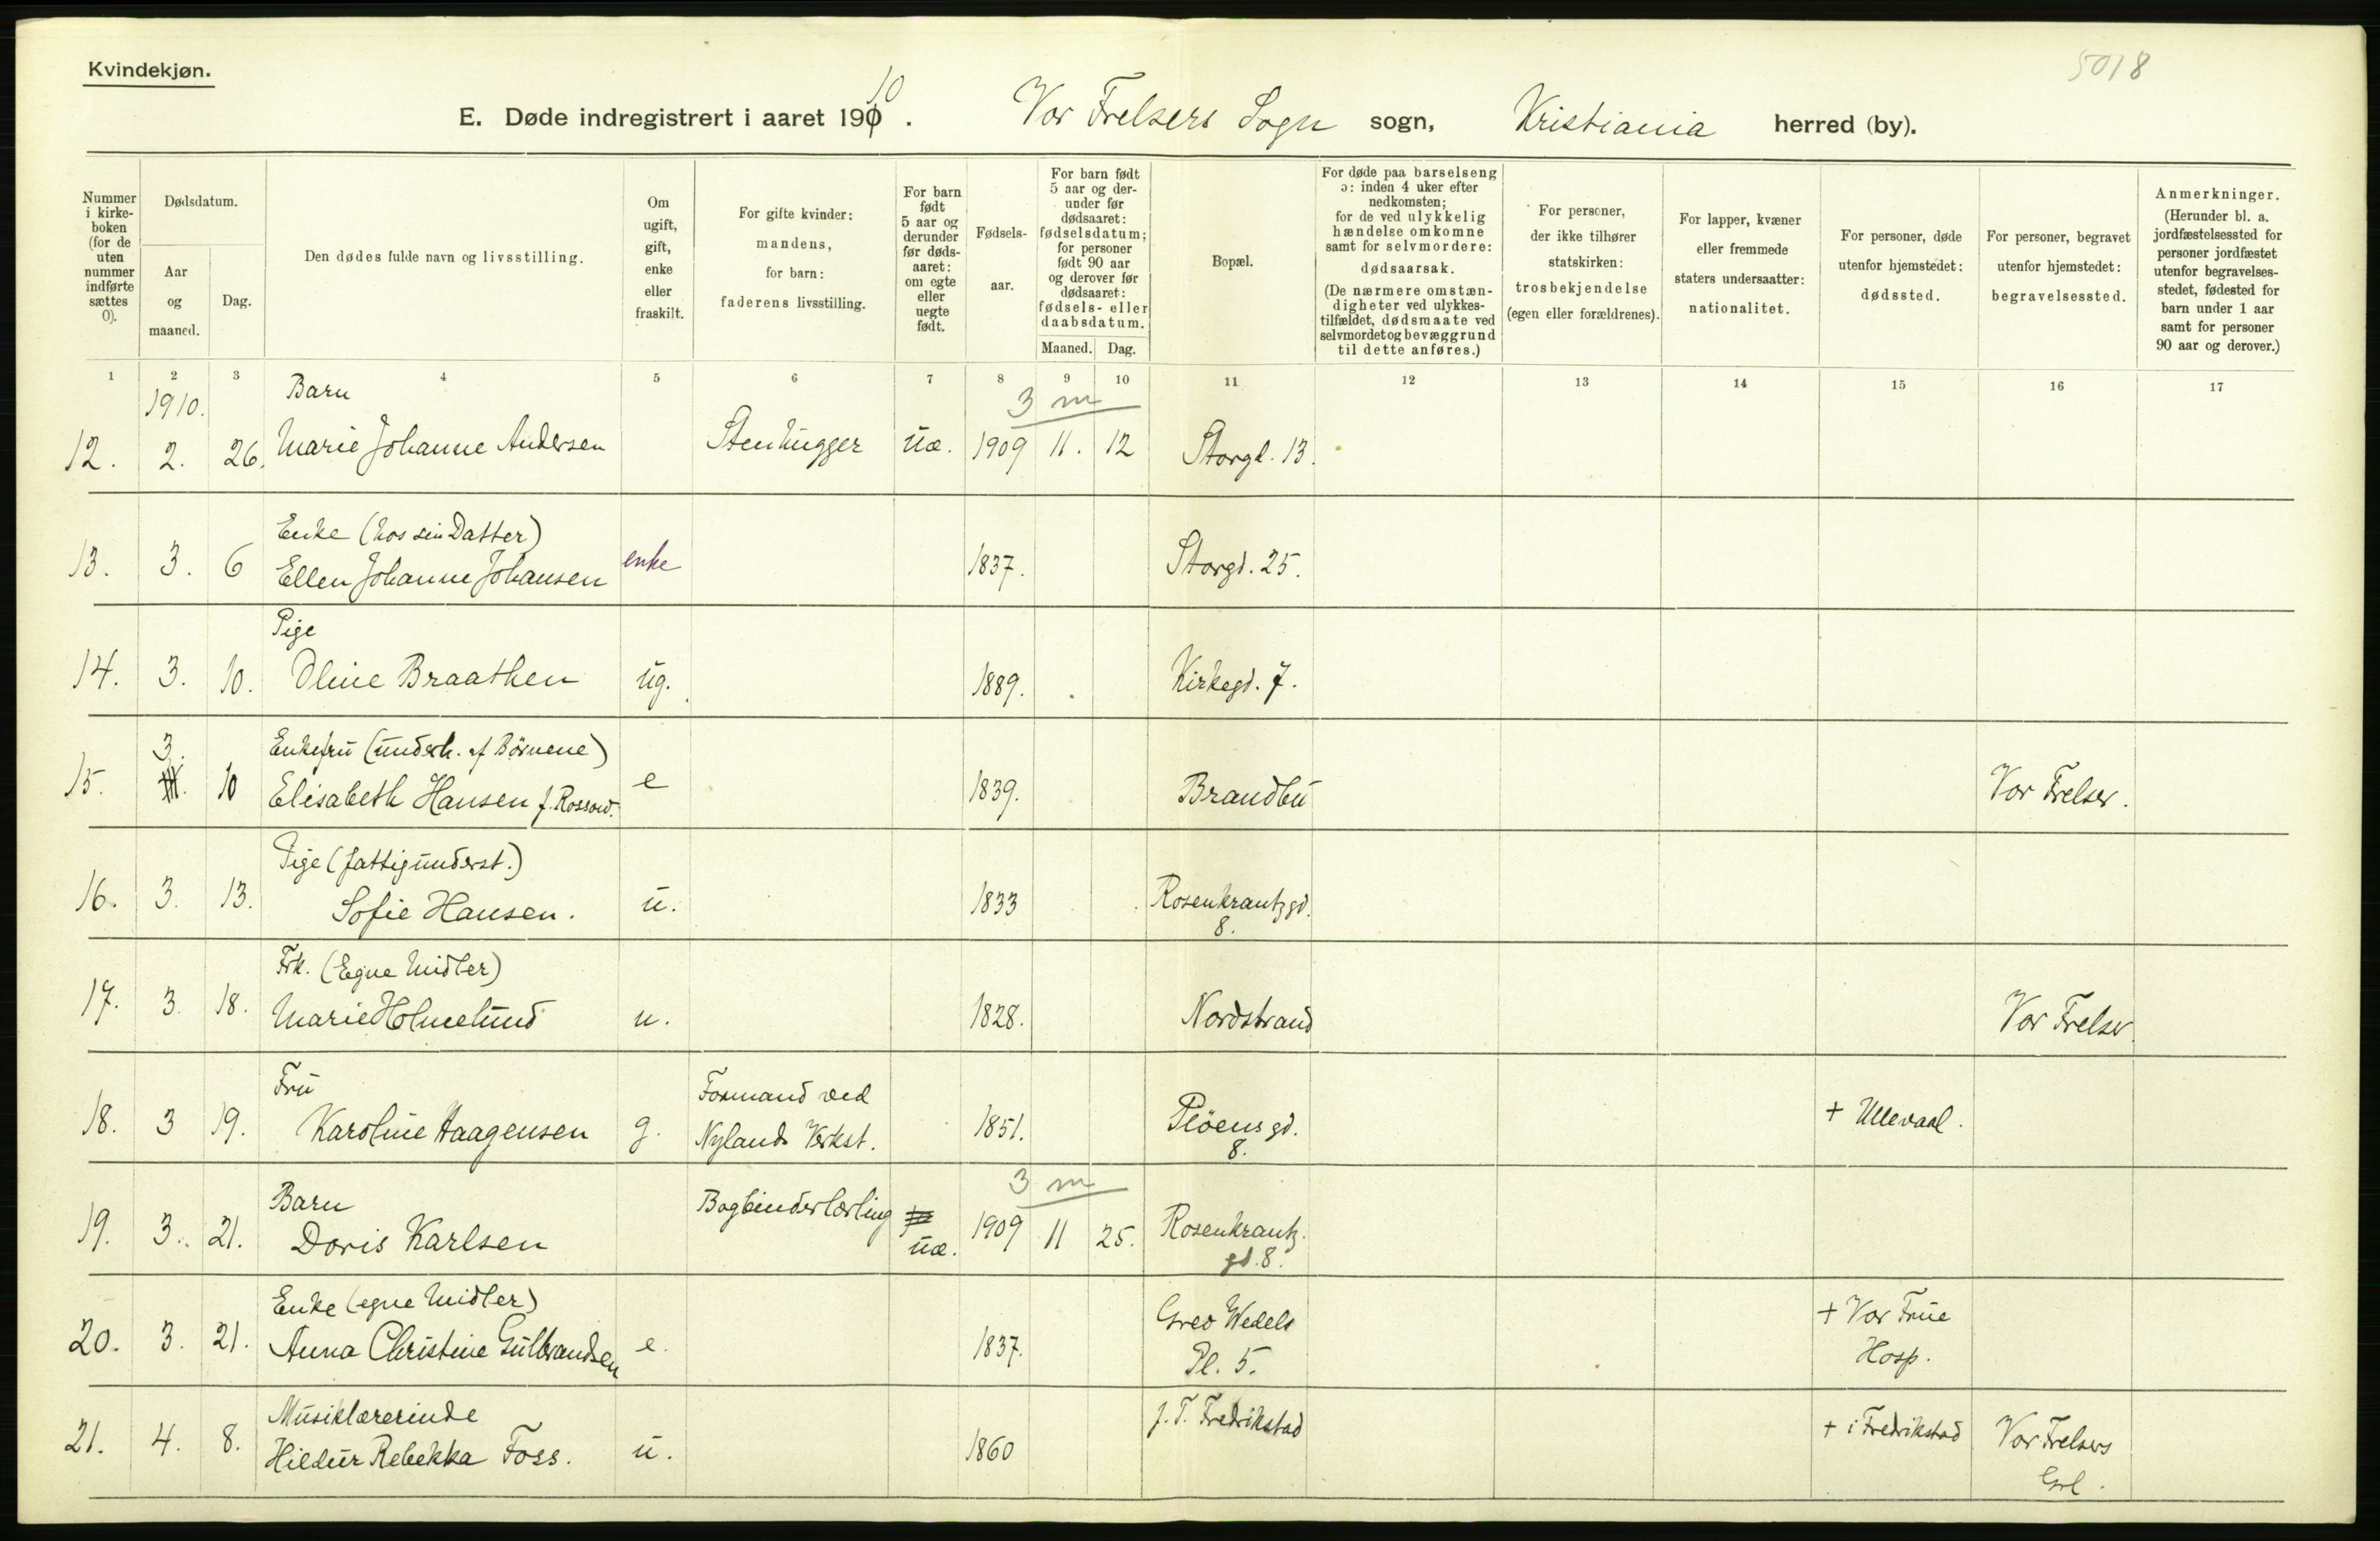 Kvindekjøn.
5018
E. Døde indregistrert i aaret 1910. Vor Frelsers Sogn sogn, Kristiania herred (by).
Nummer i kirkeboken (for de uten nummer indførte sættes 0).
Dødsdatum.
Aar og maaned.
Dag.
Den dødes fulde navn og livsstilling.
Om ugift, gift, enke eller fraskilt.
For gifte kvinder: mandens, for barn: faderens livsstilling.
For barn født 5 aar og derunder før dødsaaret: om egte eller uegte født.
Fødselsaar.
For barn født 5 aar og derunder før dødsaaret: fødselsdatum; for personer født 90 aar og derover før dødsaaret: fødsels- eller daabsdatum.
Maaned. Dag.
Bopæl.
For døde paa barselseng ɔ: inden 4 uker efter nedkomsten; for de ved ulykkelig hændelse omkomne samt for selvmordere: dødsaarsak. (De nærmere omstændigheter ved ulykkestilfældet, dødsmaate ved selvmordet og bevæggrund til dette anføres.)
For personer, der ikke tilhører statskirken: trosbekjendelse (egen eller forældrenes).
For lapper, kvæner eller fremmede staters undersaatter: nationalitet.
For personer, døde utenfor hjemstedet: dødssted.
For personer, begravet utenfor hjemstedet: begravelsessted.
Anmerkninger. (Herunder bl. a. jordfæstelsessted for personer jordfæstet utenfor begravelsesstedet, fødested for barn under 1 aar samt for personer 90 aar og derover.)
1 2 3 4 5 6 7 8 9 10 11 12 13 14 15 16 17
1910. Barn 3 m
12. 2. 26. Marie Johanne Andersen Stenhugger uæ. 1909 11. 12 Storgd. 13.
Enke (hos sin Datter)
13. 3. 6 Ellen Johanne Johansen enke 1837. Storgd. 25.
Pige
14. 3. 10. Oline Braathen ug. 1889. Kirkegd. 7.
Enkefru (underh. af Børnene)
15. 3. 10 Elisabeth Hansen f. Rossow. e 1839. Brandbu Vor Frelser.
Pige (fattigunderst.)
16. 3. 13. Sofie Hansen. u. 1833 Rosenkrantzgd.
8.
Frk. (Egne Midler)
17. 3. 18. Marie Holmelund u. 1828. Nordstrand Vor Frelser.
Fru Formand ved
18. 3 19. Karoline Haagensen g. Nylands Verkst. 1851. Pløensgd. + Ullevaal.
8.
Barn Bogbinderlærling 3 m
19. 3. 21. Doris Karlsen uæ. 1909 11 25. Rosenkrantz.
gd. 8.
Enke (egne Midler) Grev Wedels + Vor Frue
20. 3. 21. Anna Christine Gulbrandsen e. 1837. Pl. 5. Hosp.
Musiklærerinde f. T. Fredrikstad + i Fredrikstad Vor Frelsers
21. 4. 8. Hildur Rebekka Foss. u. 1860
Grl.